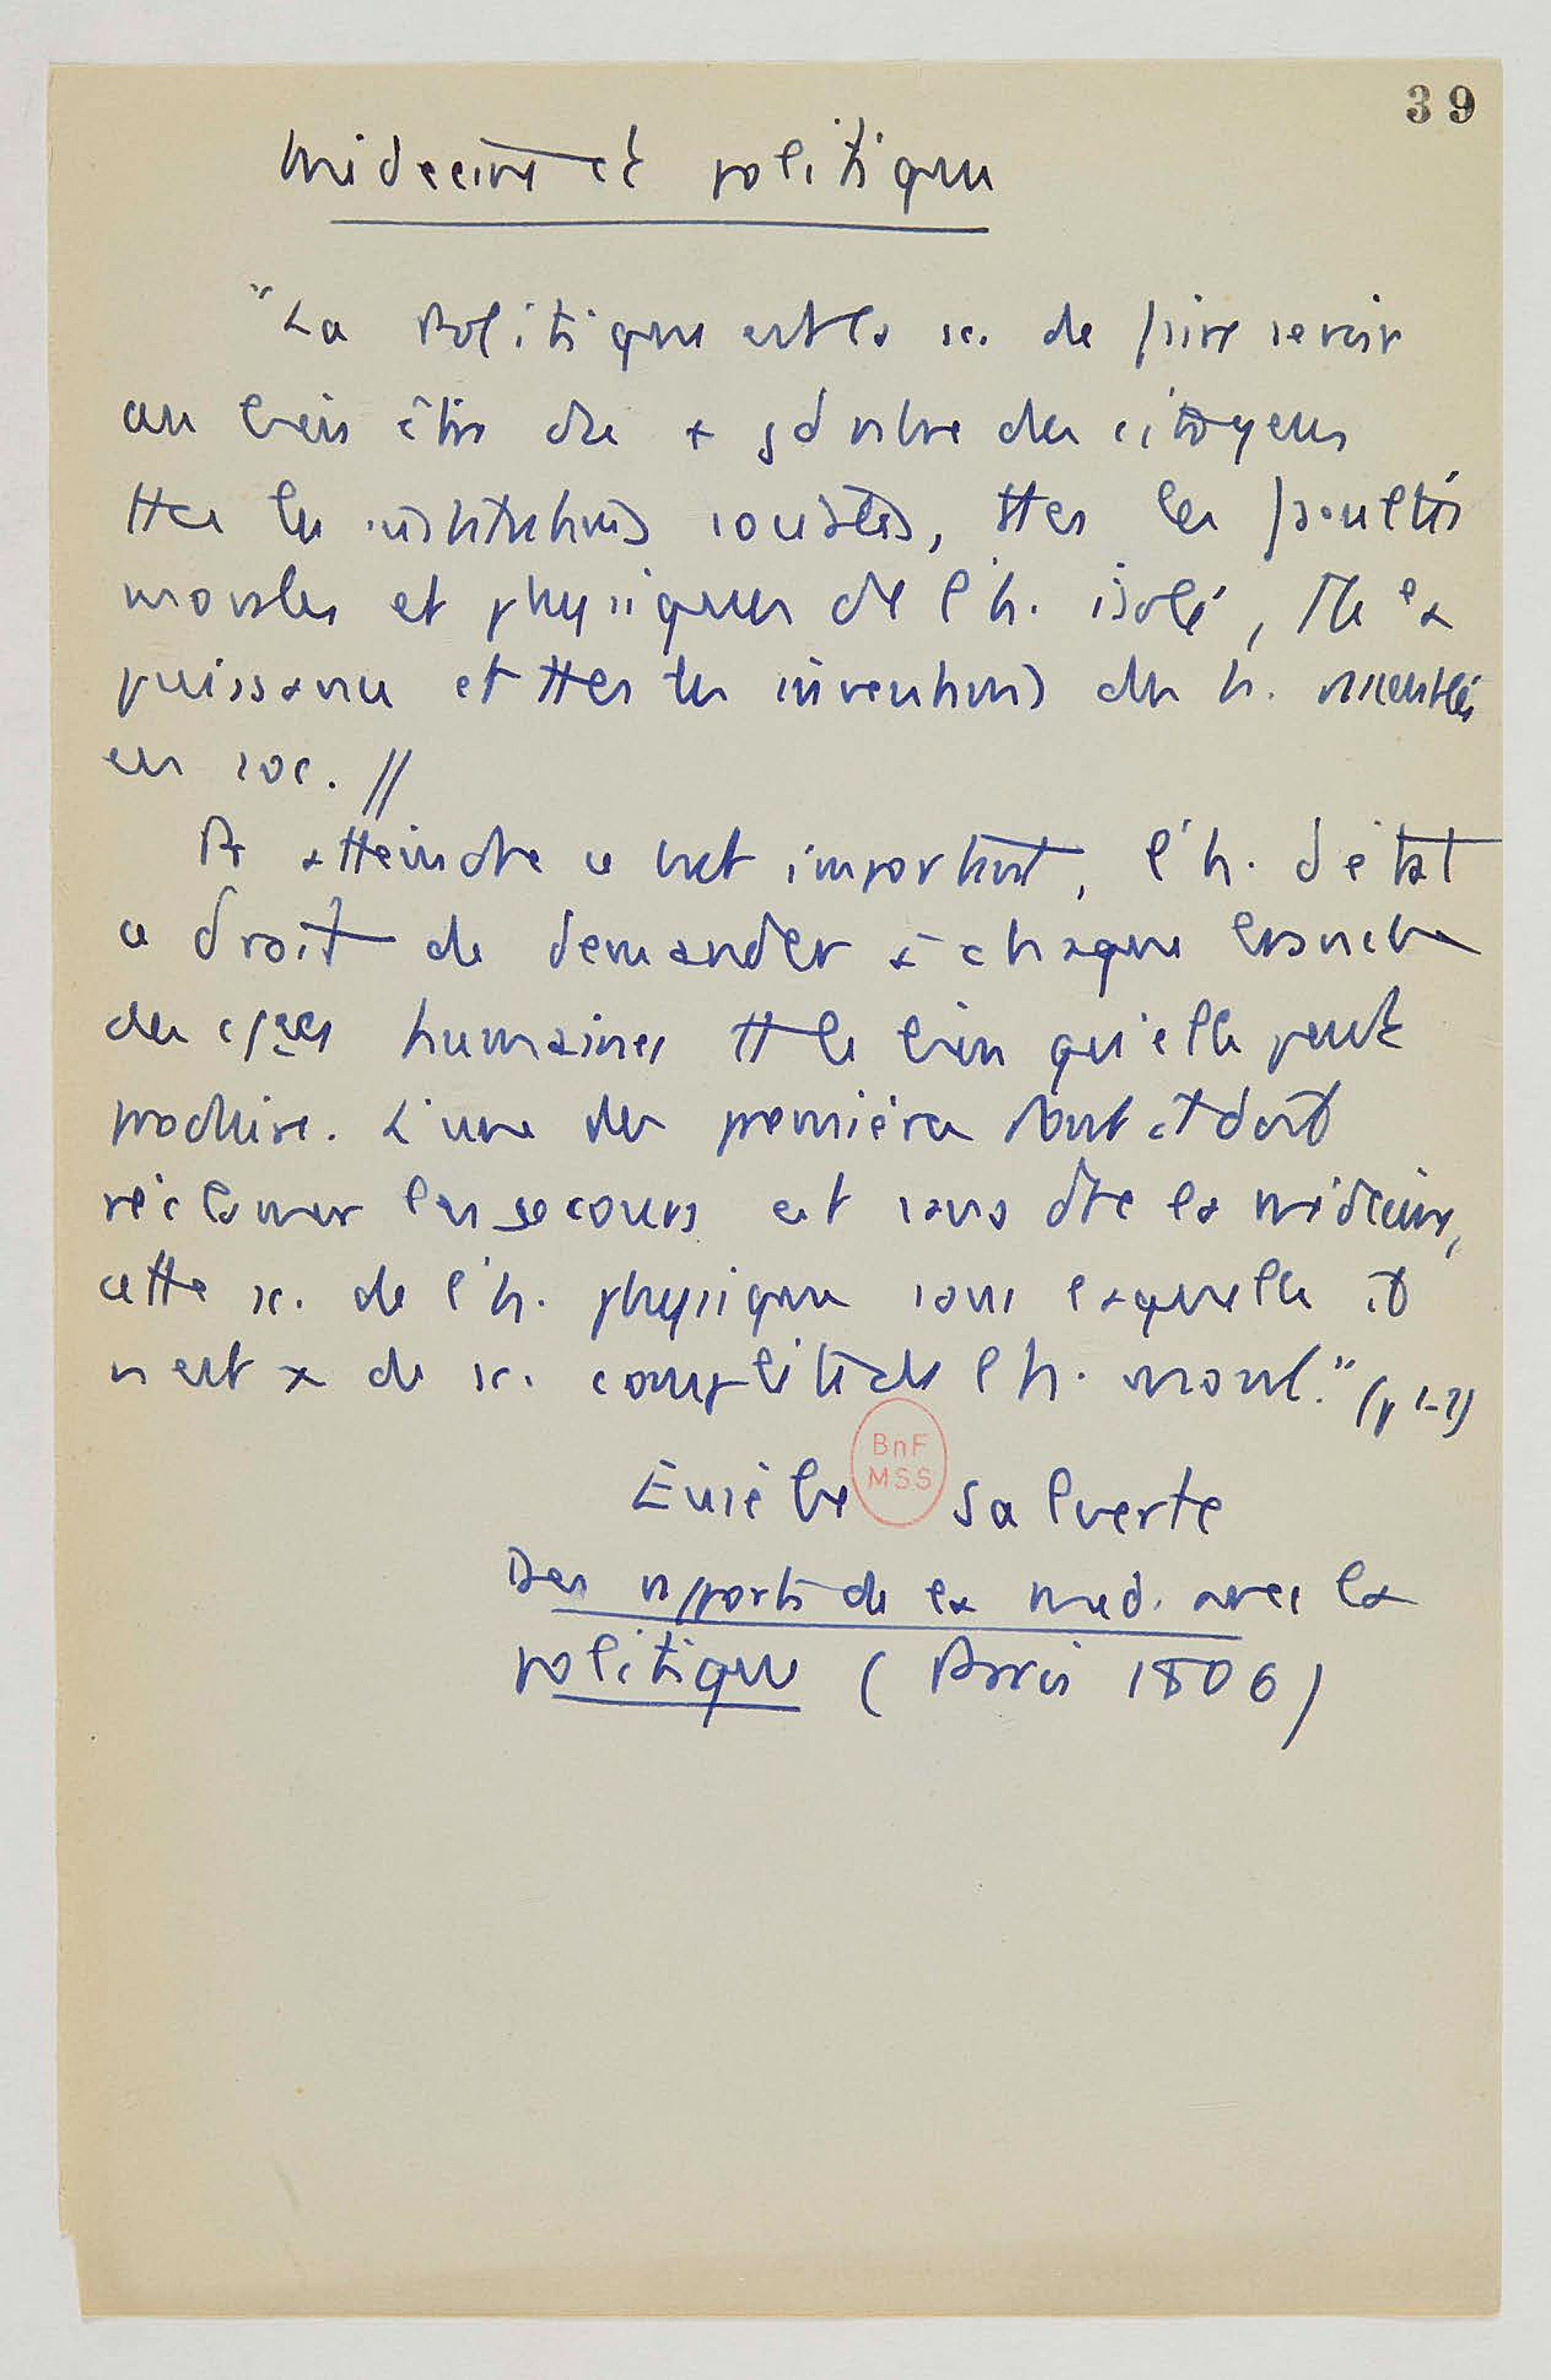 39
Médecine et politique
"La Politique est la sc. de faire servir
au bien être du + gd nbre des citoyens
ttes les institutions sociales, ttes les facultés
morales et physiques de l'h. isolé, tte la
puissance et ttes les inventions des h. rassemblés
en soc. //
Pr atteindre ce but important, l'h. d'état
a droit de demander à chaque branche
des humaines tt le bien qu'elle peut
produire. L'une des premières dont il doit
réclamer les secours est sans dte la médecine,
cette sc. de l'h. physique sans laquelle il
n'est x de sc. complète de l'h. moral." (p 1-2)
Eusèbe Salverte
BnF
MSS
Des rapports de la med. avec la
politique (Paris 1806)